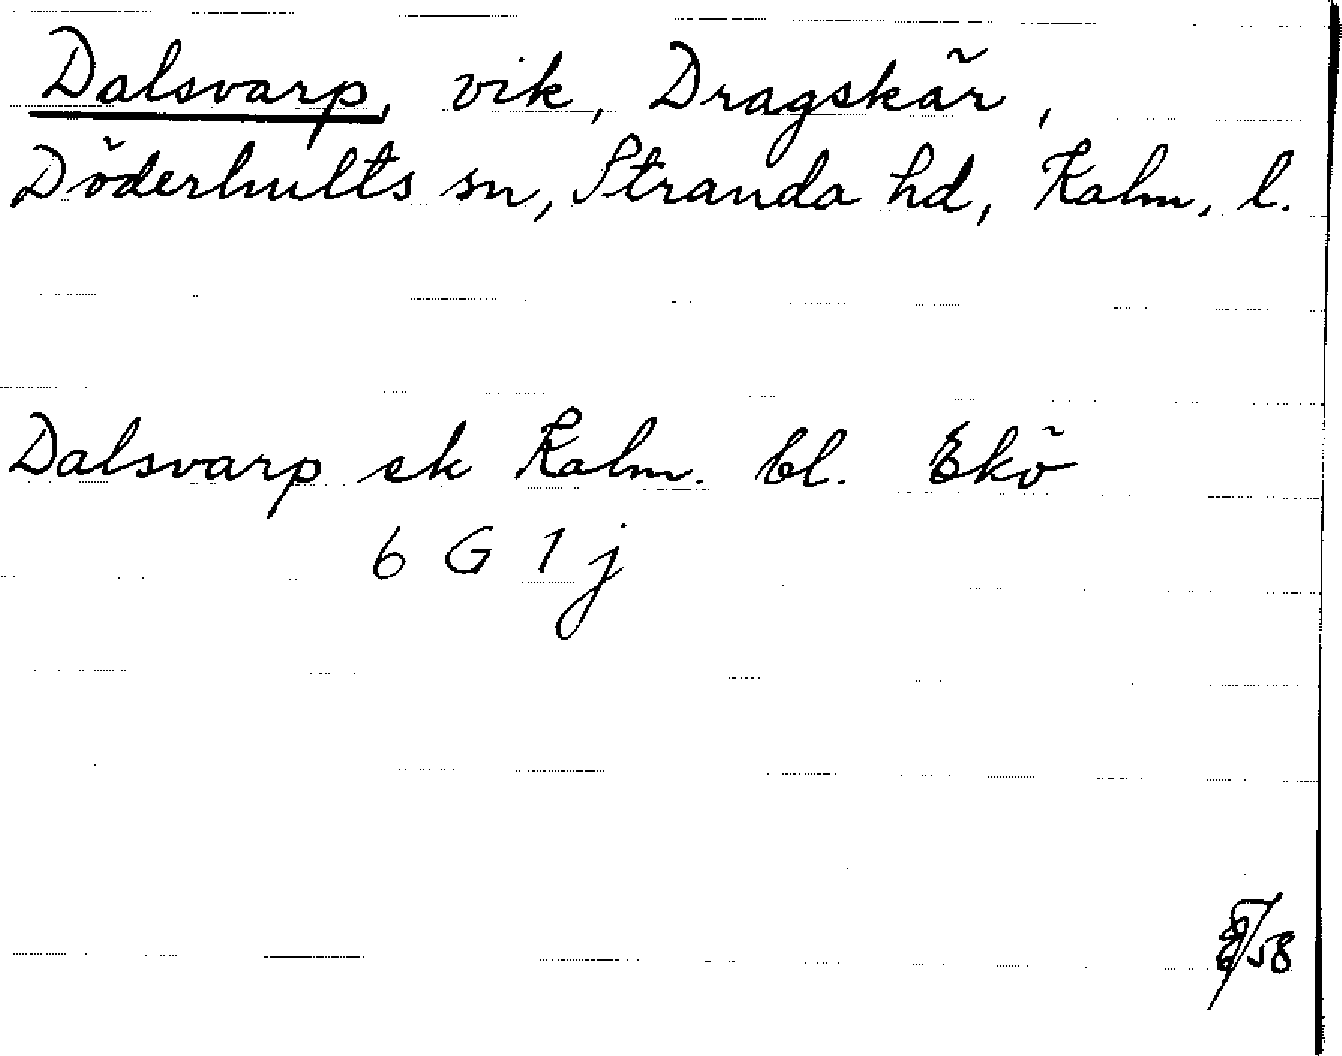 Dalsvarp, vik, Dragskär,
Döderhults sn, Stranda hd, Kalm. l.
Dalsvarp ek Kalm. bl. Ekö
6 G 1 j
/58